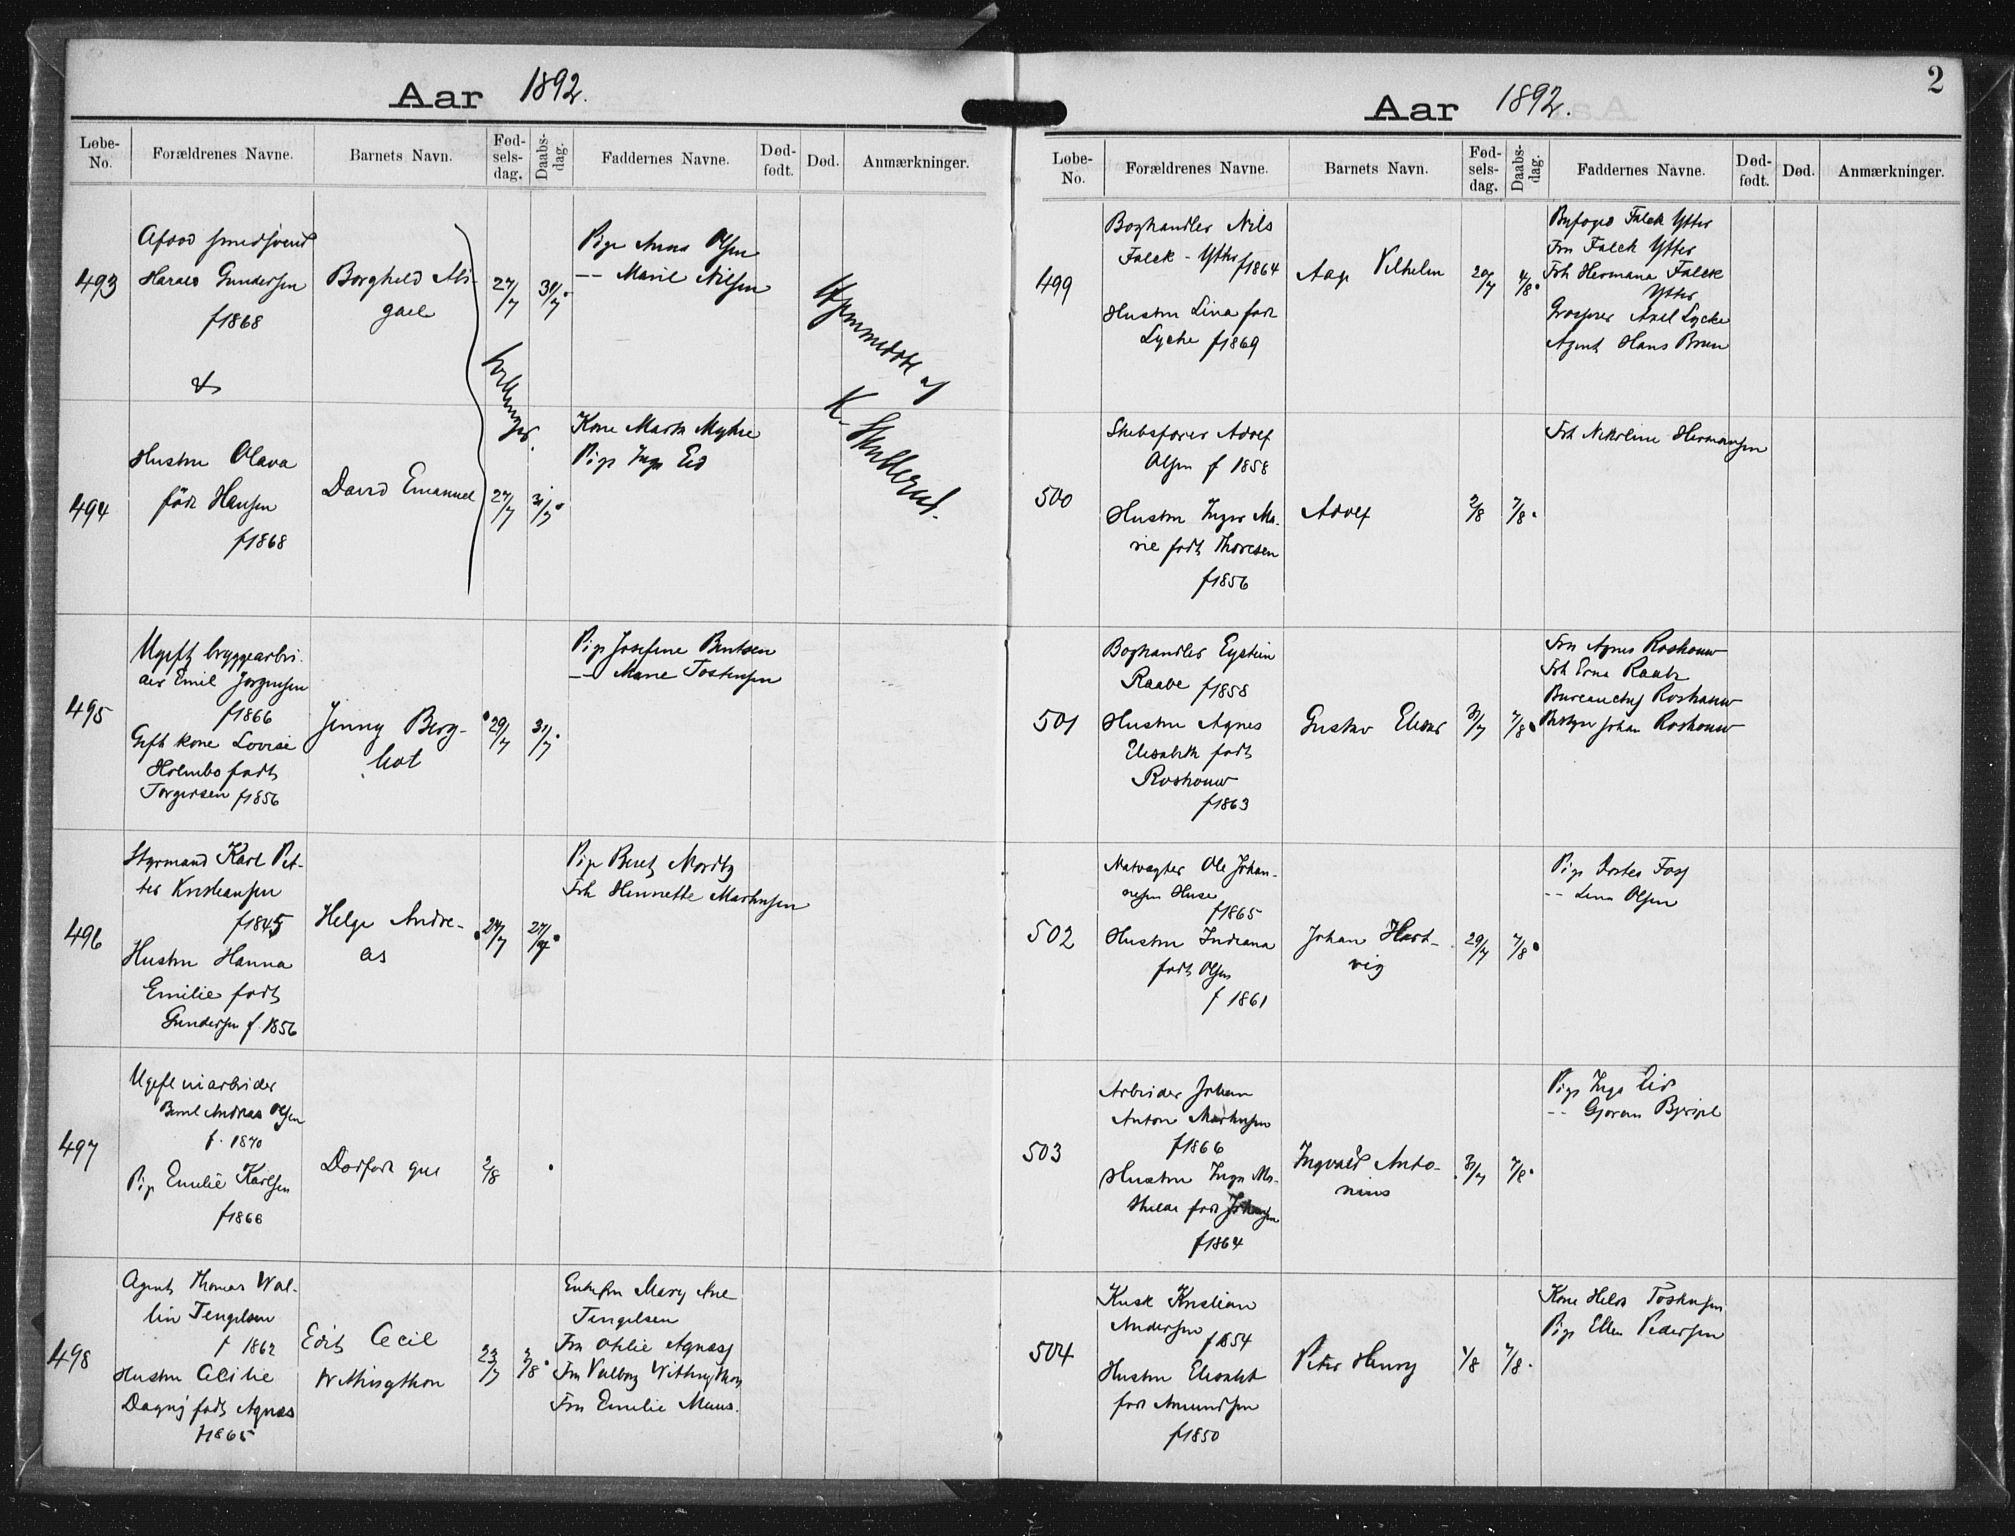 Aar 1892.
Løbe-No. Forældrenes Navne. Barnets Navn. Fød-sels-dag. Daabs-dag. Faddernes Navne. Død-født. Død. Anmærkninger.
493
Harald Gundersen
f1868
&
Borghild
gail
27/7
31/7
Pige Anna Olsen
-- Marie Nilsen
Hjemmedøbt af
K. Skullerud.
tvillinger.
494
Hustru Olava
født Hansen
f1868
David Emanuel
27/7
31/7
Kone Marta Myhre
Pige Inga Eid
495
Ugift bryggearbei-
der Emil Jørgensen
f1866
Gift kone Lovise
Holmbo født
Torgersen f1856
Jenny Borg-
hot
29/7
31/7
Pige Josefine Bentsen
-- Marie Tostensen
496
Styrmand Karl Pet-
ter Kristiansen
f1845
Hustru Hanna
Emilie født
Gundersen f. 1856
Helge Andre-
as
27/7
Pige Beret Moritz
Frk Henriette Martinsen
497
Bernt Andreas Olsen
f. 1870
Pige Emilie Karlsen
f1866
Dødfødt gut
2/8
498
Agent Thomas Wal-
lin Tengelsen
f 1862
Hustru Cecilie
Dagny født Agnæs
f1865
Edit Cecil
Withingthon
23/7
2/8
Enkefru Mary Ane
Tengelsen
Fru Otilie Agnæs
Fru Valborg Withingthon
Fru Emilie Muus.
Aar 1892.
2
Løbe-No. Forældrenes Navne. Barnets Navn. Fød-sels-dag. Daabs-dag. Faddernes Navne. Død-født. Død. Anmærkninger.
499
Boghandler Nils
Falck-Ytter f1864
Hustru Lina født
Lyche f1869
Aage Vilhelm
20/7
4/8
Falck Ytter
Fru Falck Ytter
Frk Hermana Falck
Ytter
Grosserer Axel Lycke
Agent Hans Brun
500
Skibsfører Adolf
Olsen f 1858
Hustru Inger Ma-
rie født Thoresen
f1856
Adolf
2/8
7/8
Frk Nikoline Hermansen
501
Boghandler Eystein
Raabe f1858
Hustru Agnes
Elisabeth født
Roshauw
f1863
Gustav
31/7
7/8
Fru Agnes Roshauw
Frk Erna Raabe
Bureauchef Roshauw
Bestyrer Johan Roshauw
502
Natvagter Ole Johan-
nesen Huse
f1865
Hustru Indiana
født Olsen
f 1861
Johan Hart-
vig
29/7
7/8
Pige
-- Lina Olsen
503
Arbeider Johan
Anton Martinsen
f1866
Hustru Inga Ma-
thilde født Johansen
f1864
Ingvald Anto-
nius
31/7
7/8
Pige Inga Eid
504
Kusk Kristian
Andersen f1854
Hustru Elisabet
født Amundsen
f1850
Peter Henry
1/8
7/8
Kone Hilda Tostensen
Pige Ellen Pedersen